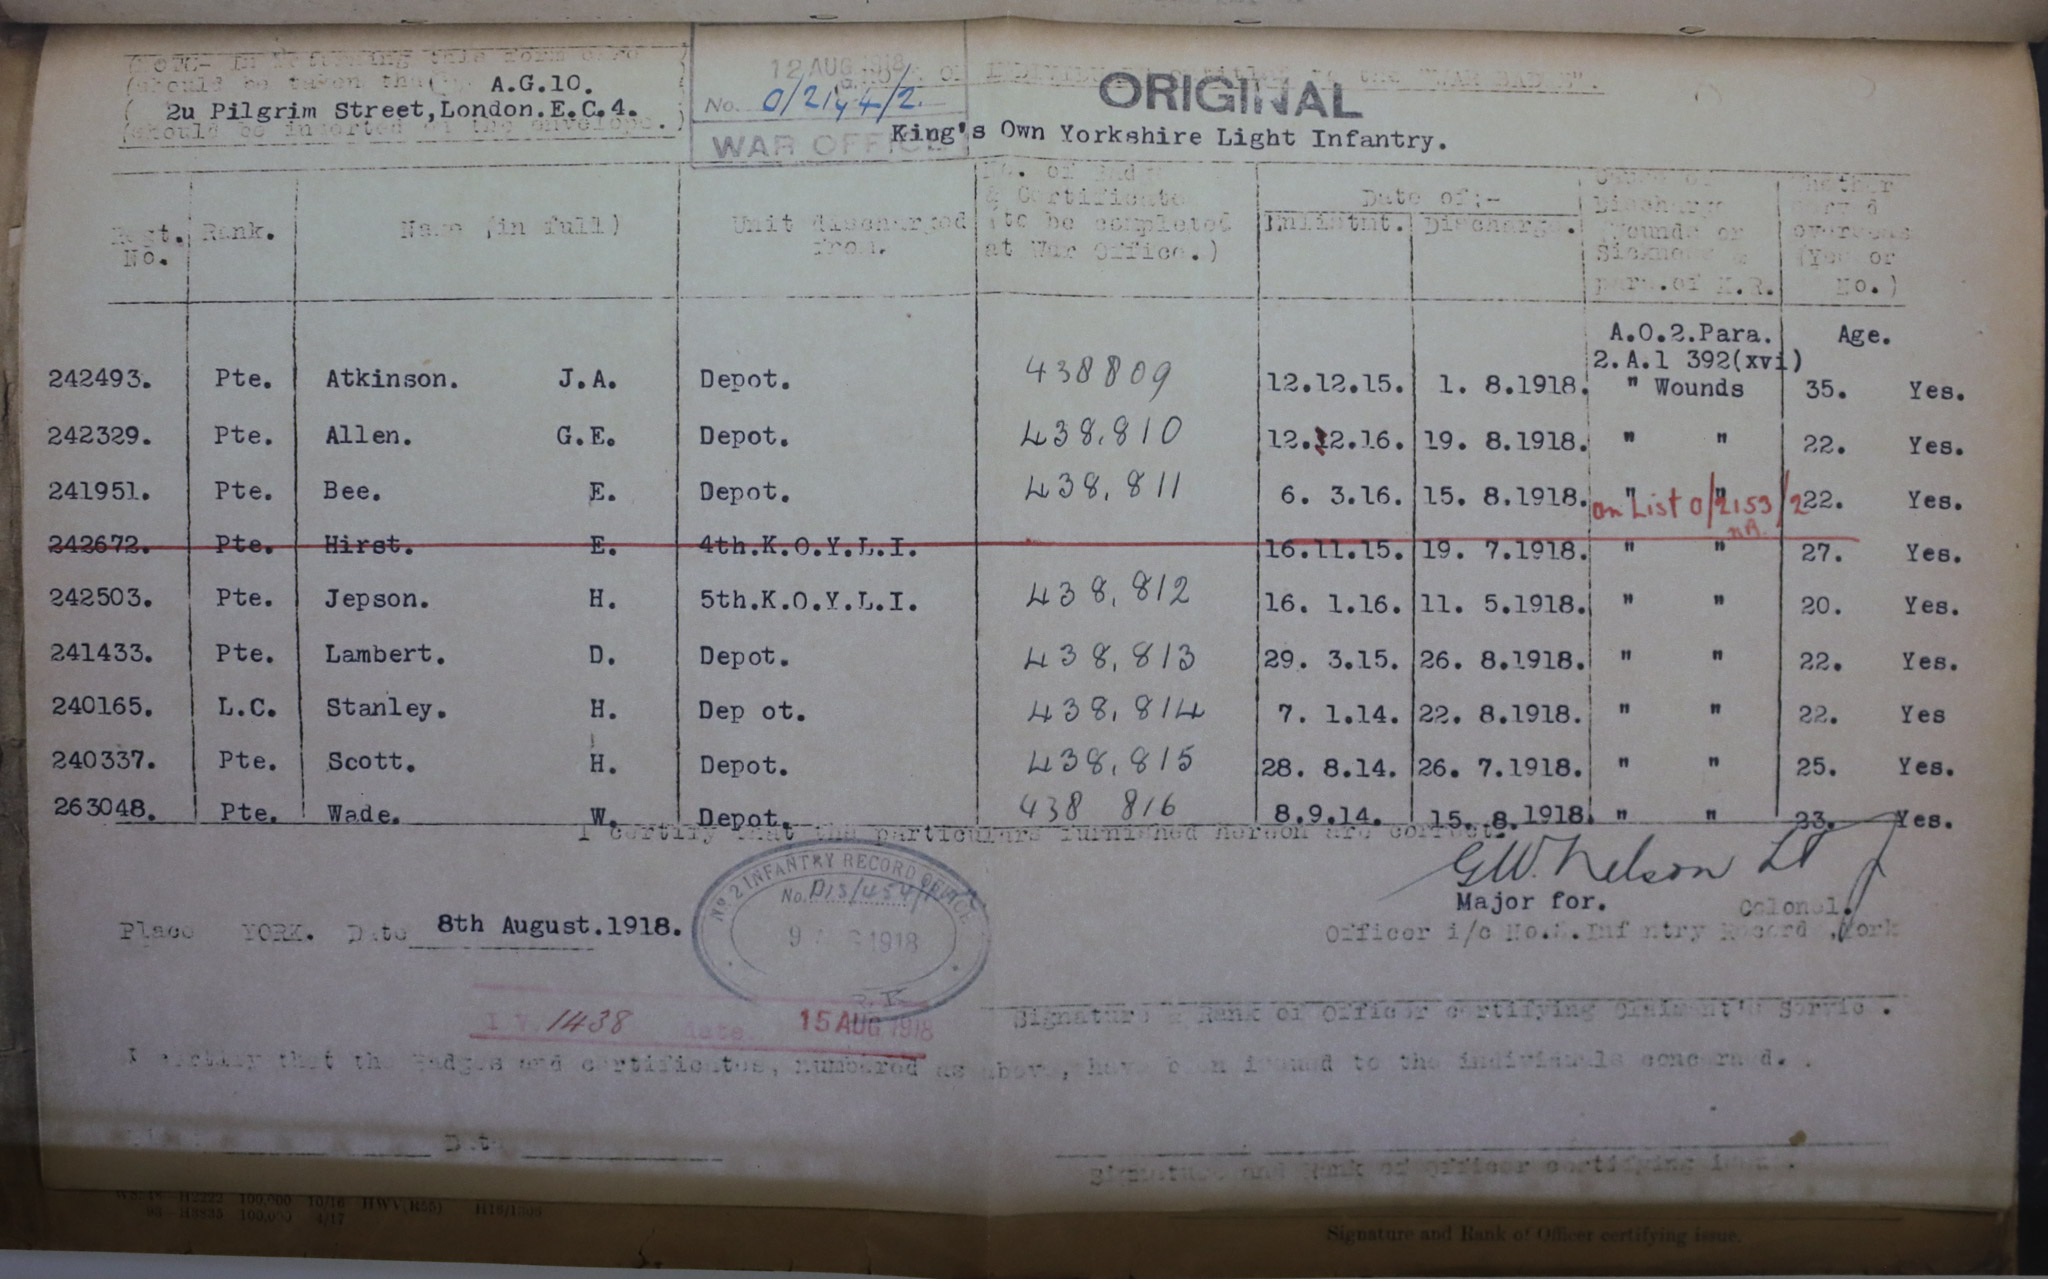 (NOTE- In returning this form care )
(should be taken tha A.G.10. )
( 2u Pilgrim Street,London.E.C.4. )
(should be inserted on the envelope. )
12 AUG 1918
No. 0/2144/2.
WAR OFFICE
of INDIVIDUALS entitled to the "WAR BADGE".
ORIGINAL
King's Own Yorkshire Light Infantry.
Regt. No. Rank. Name (in full) Unit discharged from. No. of Badge & Certificate (to be completed at War Office.) Date of:- Enlistmt. Discharge. Cause of Discharge Wounds or Sickness & para.of K.R. Whether served overseas (Yes or No.)
A.O.2.Para. Age.
2.A.1 392(xvi)
242493. Pte. Atkinson. J.A. Depot. 438809 12.12.15. 1. 8.1918. " Wounds 35. Yes.
242329. Pte. Allen. G.E. Depot. 438,810 12.12.16. 19. 8.1918. " " 22. Yes.
241951. Pte. Bee. E. Depot. 438,811 6. 3.16. 15. 8.1918. " " 22. Yes.
on List 0/2153/2
242672. Pte. Hirst. E. 4th.K.O.Y.L.I. 16.11.15. 19. 7.1918. " " 27. Yes.
242503. Pte. Jepson. H. 5th.K.O.Y.L.I. 438,812 16. 1.16. 11. 5.1918. " " 20. Yes.
241433. Pte. Lambert. D. Depot. 438,813 29. 3.15. 26. 8.1918. " " 22. Yes.
240165. L.C. Stanley. H. Dep ot. 438,814 7. 1.14. 22. 8.1918. " " 22. Yes
240337. Pte. Scott. H. Depot. 438,815 28. 8.14. 26. 7.1918. " " 25. Yes.
263048. Pte. Wade. W. Depot. 438 816 8.9.14. 15. 8.1918. " " 23. Yes.
I certify that the particulars furnished hereon are correct.
G.W. Nelson Lt
Major for. Colonel.
Officer i/c No.2.Infantry Record ,York
No. 2 INFANTRY RECORD OFFICE
9 AUG 1918
Place YORK. Date 8th August.1918.
Signature & Rank of Officer certifying Claimant's Servic .
I V. 1438 date 15 AUG 1918
I certify that the Badges and certificates, numbered as above, have been issued to the individuals concerned.
Date
Signature and Rank of Officer certifying issue.
H2222 100,000 10/16 HWV(R55)
93 100,000 4/17
Signature and Rank of Officer certifying issue.